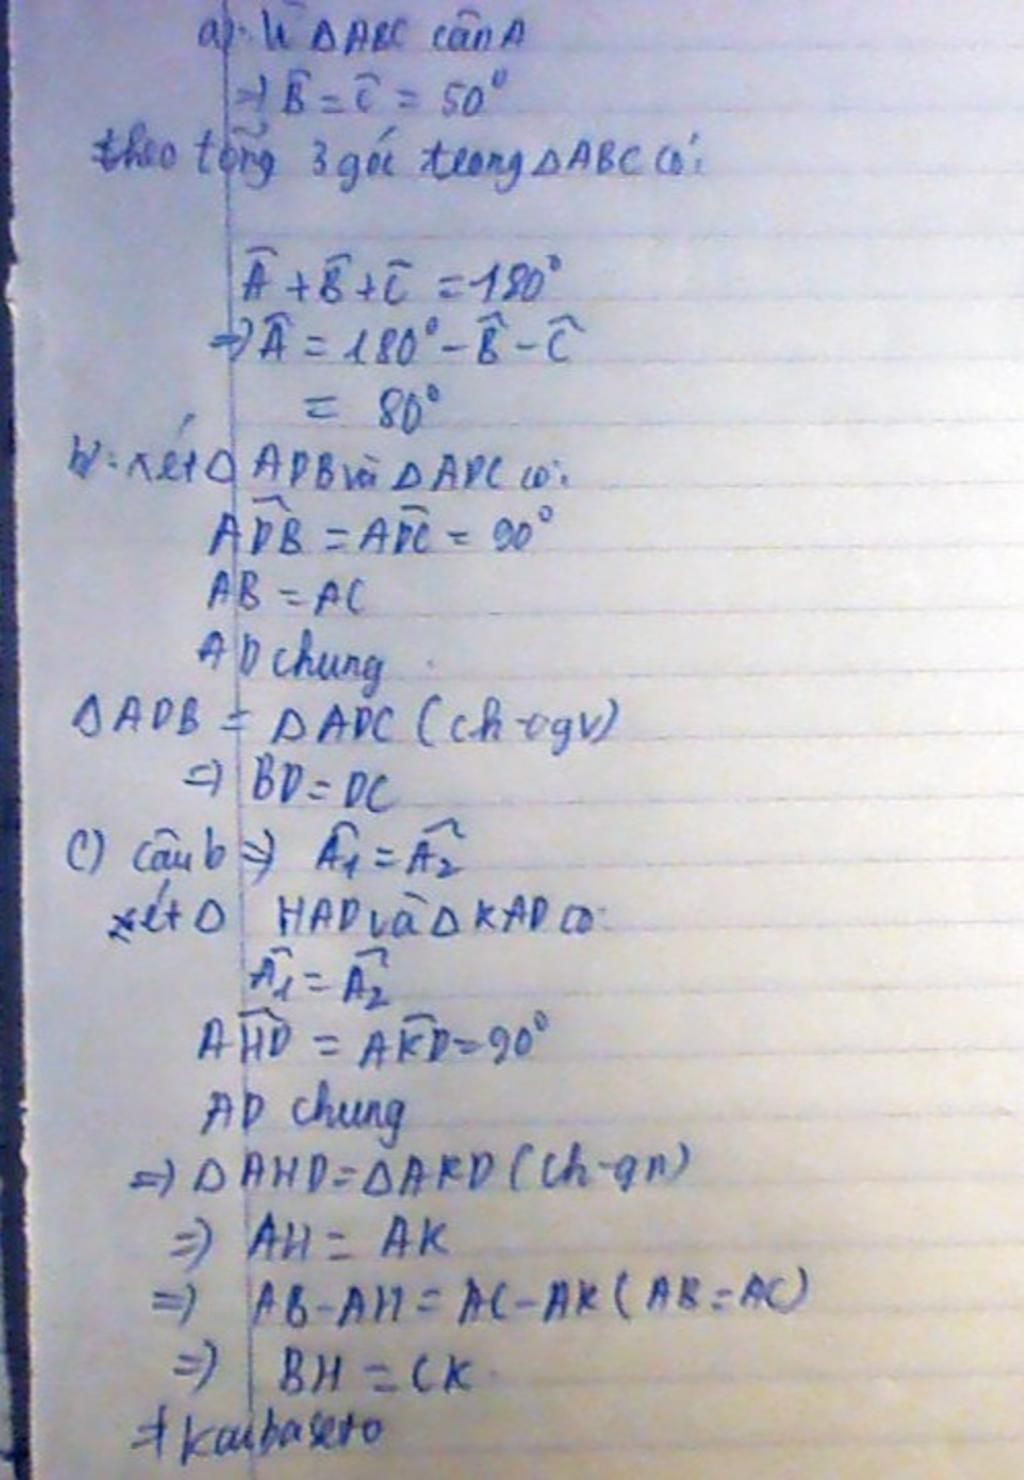 a) Vì ΔABC cân A
=> B̂ = Ĉ = 50°
theo tổng 3 góc trong ΔABC có:
Â + B̂ + Ĉ = 180°
=> Â = 180° - B̂ - Ĉ
= 80°
b) xét Δ ADB và Δ ADC có:
AD̂B = AD̂C = 90°
AB = AC
AD chung
Δ ADB = Δ ADC (ch-cgv)
=> BD = DC
c) câu b => Â1 = Â2
xét Δ HAD và Δ KAD có:
Â1 = Â2
AĤD = AK̂D = 90°
AD chung
=> Δ AHD = Δ AKD (ch-gn)
=> AH = AK
=> AB - AH = AC - AK (AB = AC)
=> BH = CK
#kaibaseto